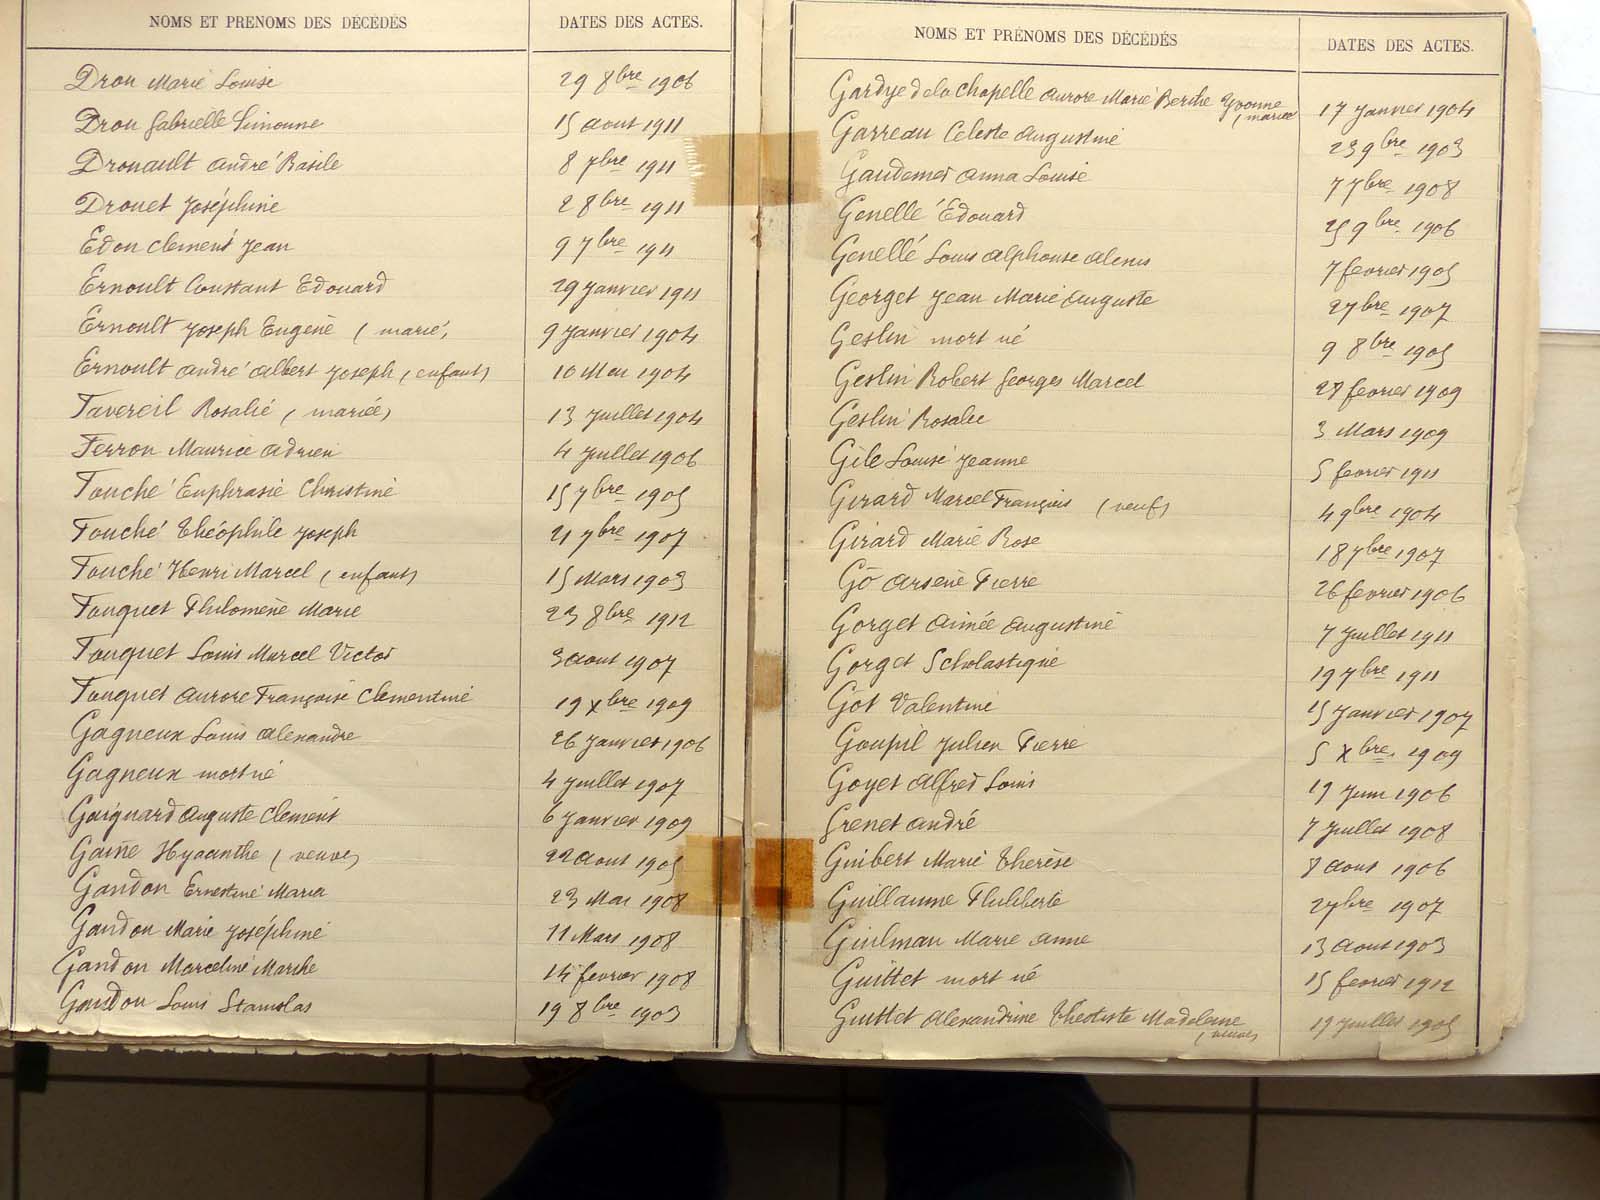 NOMS ET PRÉNOMS DES DÉCÉDÉS DATES DES ACTES.
Dron Marie Louise 29 8bre 1906
Dron Gabrielle Simonne 15 aout 1911
Drouault andré Basile 8 7bre 1911
Drouet Joséphine 2 8bre 1911
Edon Clement Jean 9 7bre 1911
Ernoult Constant Edouard 29 Janvier 1911
Ernoult Joseph Eugène (marié) 9 Janvier 1904
Ernoult andré albert Joseph (enfant) 10 Mai 1904
Favereil Rosalie (mariée) 13 Juillet 1904
Ferron Maurice adrien 4 Juillet 1906
Fouché Euphrasie Christine 15 7bre 1905
Fouché Théophile Joseph 21 7bre 1907
Fouché Henri Marcel (enfant) 15 Mars 1903
Fouquet Philomène Marie 23 8bre 1912
Fouquet Louis Marcel Victor 3 aout 1907
Fouquet aurore Françoise Clementine 19 Xbre 1909
Gagneux Louis alexandre 26 Janvier 1906
Gagneux mort né 4 Juillet 1907
Gaignard auguste Clement 6 Janvier 1909
Gaine Hyacinthe (veuve) 22 aout 1905
Gandon Ernestine Maria 23 Mai 1908
Gandon Marie Joséphine 11 Mars 1908
Gandon Marceline Marthe 14 fevrier 1908
Gandon Louis Stanislas 19 8bre 1903
NOMS ET PRÉNOMS DES DÉCÉDÉS DATES DES ACTES.
Gardye de la Chapelle aurore Marie Berthe Yvonne 17 Janvier 1904
(mariée
Garreau Celeste augustine 23 9bre 1903
Gaudemer anna Louise 7 7bre 1908
Genellé Edouard 25 9bre 1906
Genellé Louis alphonse alexis 7 fevrier 1905
Georget Jean Marie auguste 2 7bre 1907
Geslin mort né 9 8bre 1905
Geslin Robert Georges Marcel 27 fevrier 1909
Geslin Rosalie 3 Mars 1909
Gile Louise Jeanne 5 fevrier 1911
Girard Marcel François (veuf) 4 9bre 1904
Girard Marie Rose 18 7bre 1907
Gô arsène Pierre 26 fevrier 1906
Gorget aimée augustine 7 Juillet 1911
Gorget Scholastique 19 7bre 1911
Gôt Valentine 15 Janvier 1907
Goupil Julien Pierre 5 Xbre 1909
Goyet alfred Louis 19 Juin 1906
Grenet andré 7 Juillet 1908
Guibert Marie Thérèse 8 aout 1906
Guillaume Philiberte 2 7bre 1907
Guilman Marie anne 13 aout 1903
Guittet mort né 15 fevrier 1912
Guittet alexandrine Théotiste Madeleine 19 Juillet 1905
(veuve)